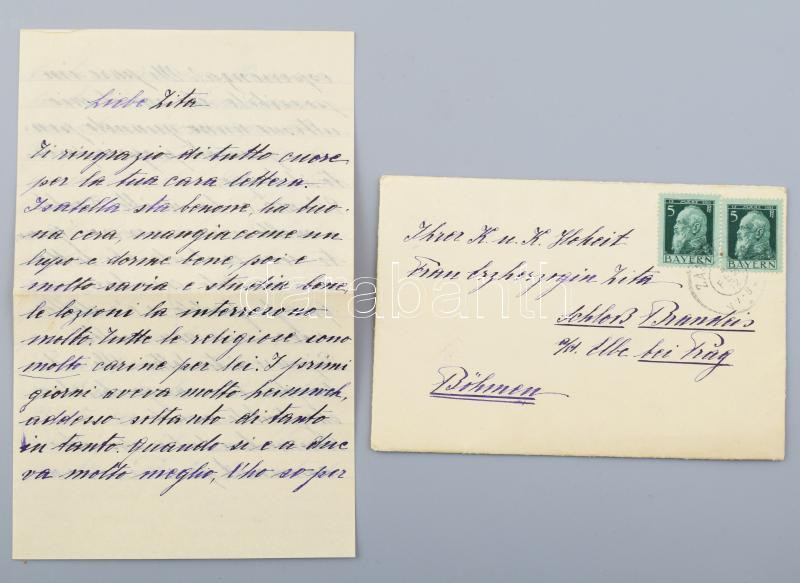 Liebe Zita
Ti ringrazio di tutto cuore
per la tua cara lettera.
Isabella sta benone, ha buo-
na cera, mangia come un
lupo e dorme bene, poi e
molto savia e studia bene,
le lezioni la interessono
molto. Tutte le religiose sono
molto carine per lei. I primi
giorni aveva molto heimweh,
addesso soltanto di tanto
in tanto. Quando si e a due
va molto meglio, l'ho so per
Ihrer K. u. K. Hoheit
Frau Erzherzogin Zita
Schloß Brandeis
a/d. Elbe bei Prag
Böhmen
5 Pf
BAYERN
5 Pf
BAYERN
darabanti